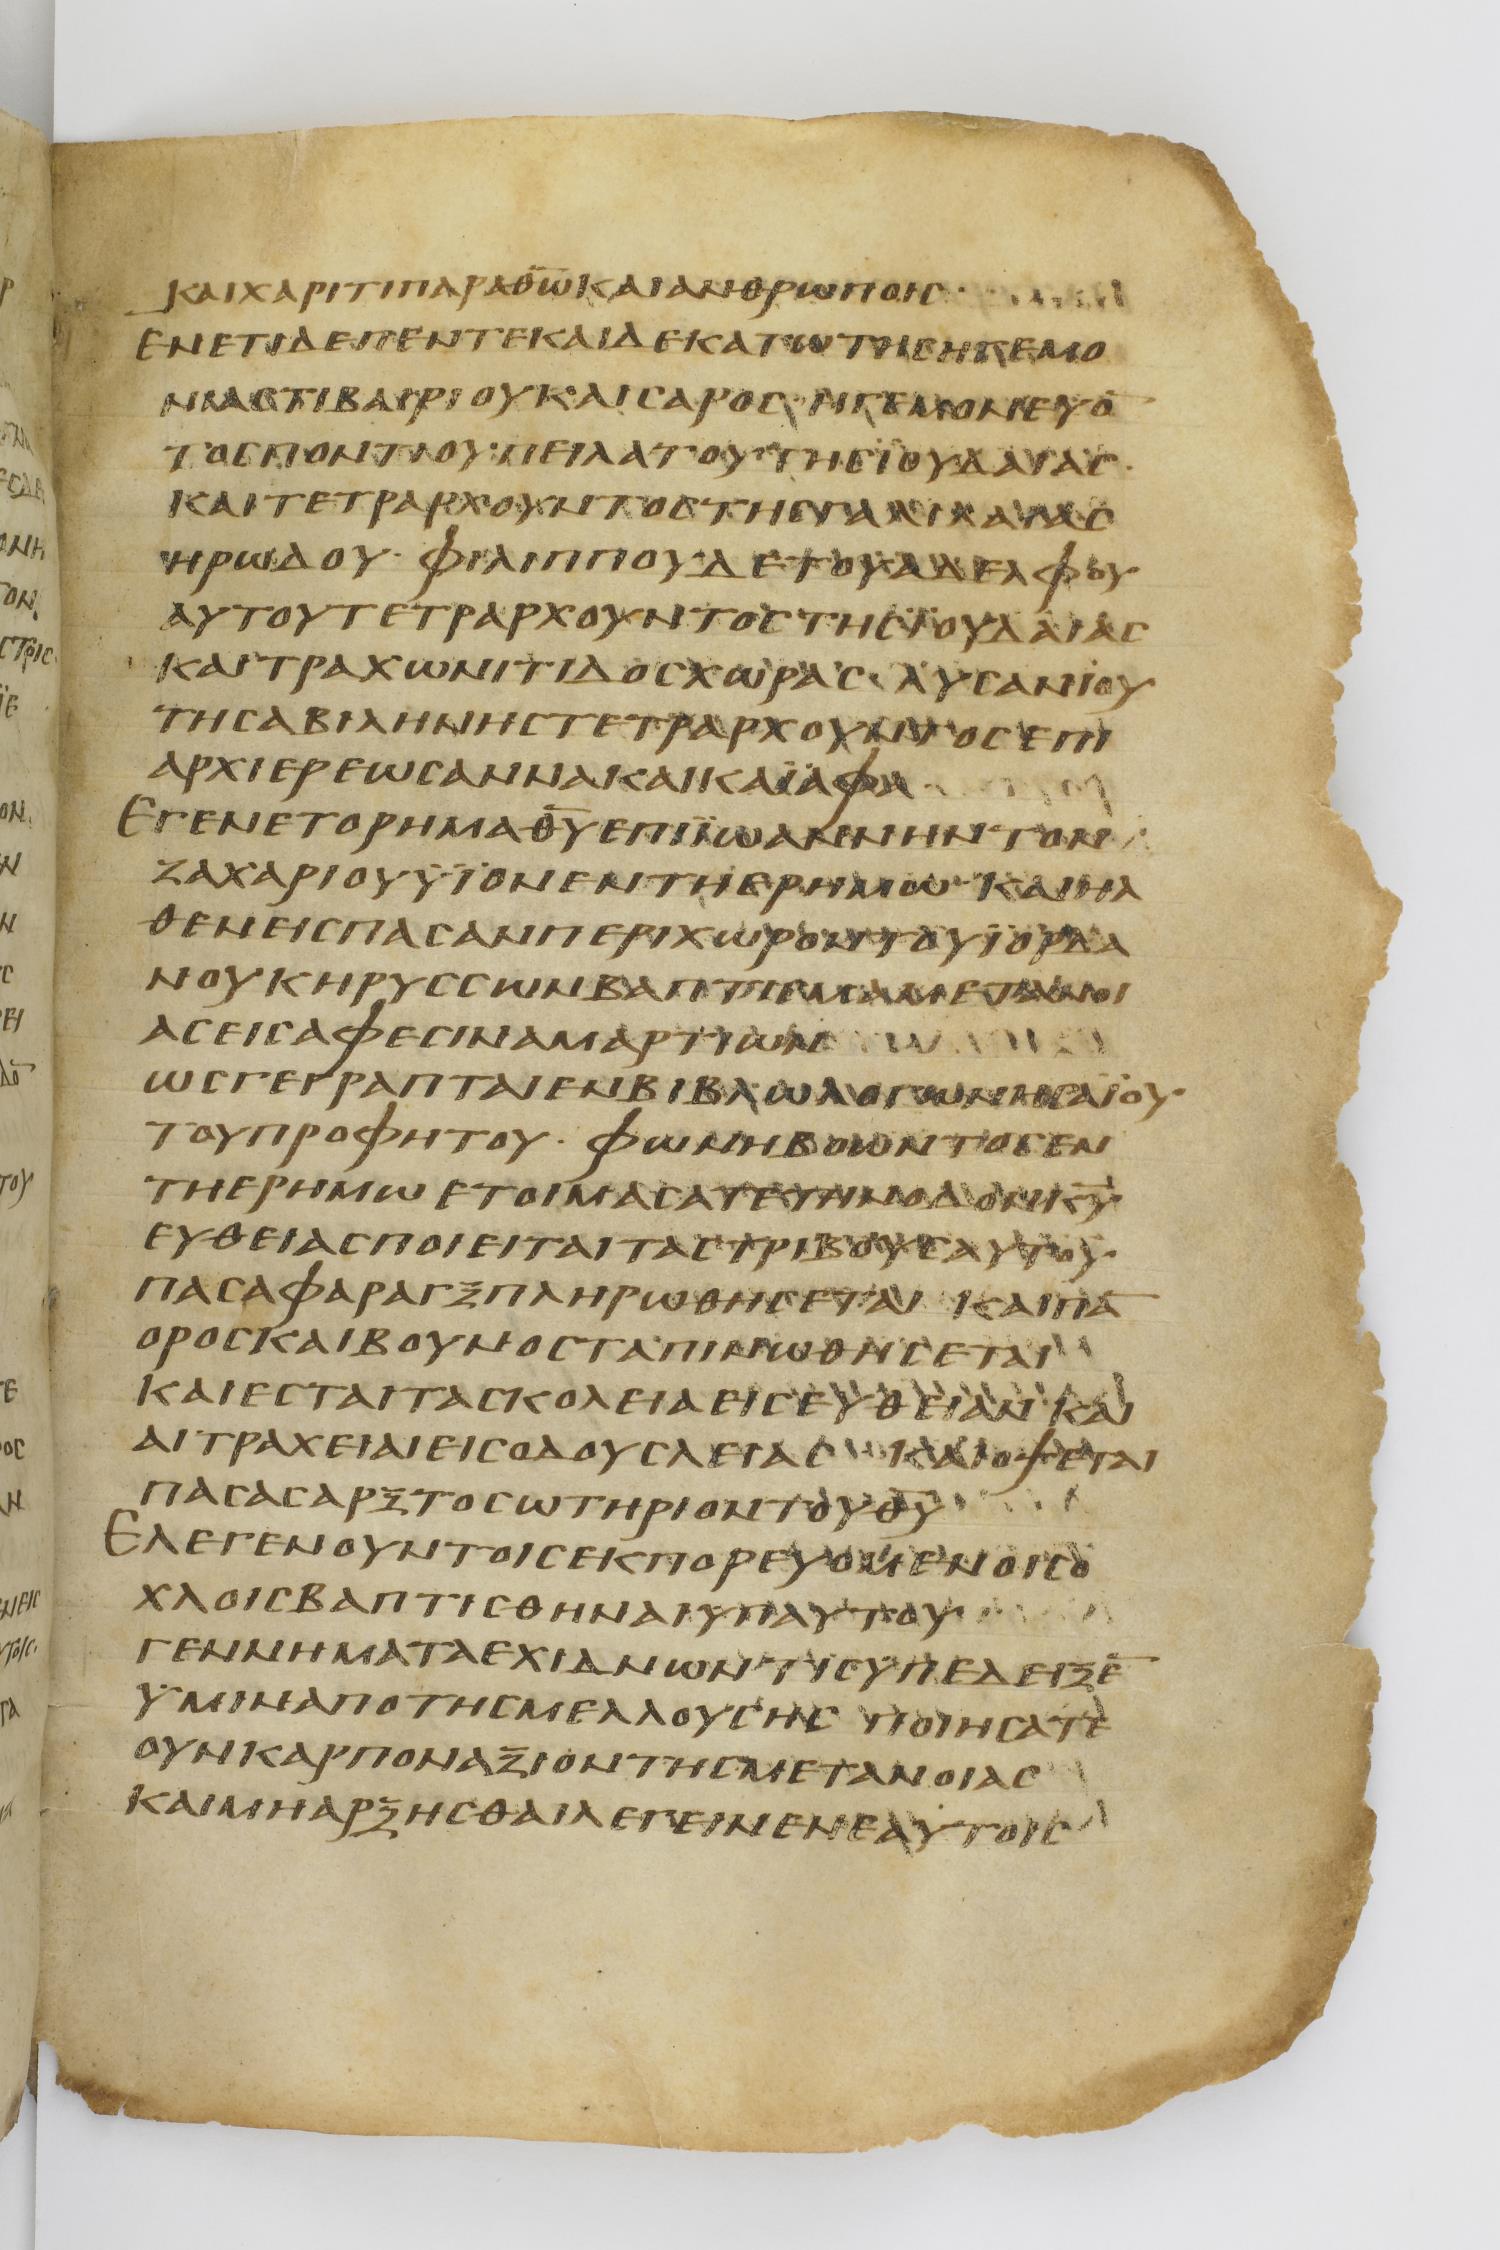 ΚΑΙΧΑΡΙΤΙΠΑΡΑΘ̅Ω̅ΚΑΙΑΝΘΡΩΠΟΙϹ·
ΕΝΕΤΙΔΕΠΕΝΤΕΚΑΙΔΕΚΑΤΩΤΗϹΗΓΕΜΟ
ΝΙΑϹΤΙΒΑΙΡΙΟΥΚΑΙϹΑΡΟϹ·ΗΓΕΜΟΝΕΥΟ̅
ΤΟϹΠΟΝΤΙΟΥ·ΠΕΙΛΑΤΟΥΤΗϹΪΟΥΔΑΙΑϹ·
ΚΑΙΤΕΤΡΑΡΧΟΥΝΤΟϹΤΗϹΓΑΛΙΛΑΙΑϹ
ΗΡΩΔΟΥ·ΦΙΛΙΠΠΟΥΔΕΤΟΥΑΔΕΛΦΟΥ
ΑΥΤΟΥΤΕΤΡΑΡΧΟΥΝΤΟϹΤΗϹΪΟΥΔΑΙΑϹ
ΚΑΙΤΡΑΧΩΝΙΤΙΔΟϹΧΩΡΑϹ·ΛΥϹΑΝΙΟΥ
ΤΗϹΑΒΙΛΗΝΗϹΤΕΤΡΑΡΧΟΥΝΤΟϹΕΠΙ
ΑΡΧΙΕΡΕΩϹΑΝΝΑΚΑΙΚΑΪΑΦΑ
ΕΓΕΝΕΤΟΡΗΜΑΘ̅Υ̅ΕΠΙΪΩΑΝΝΗΝΤΟΝ
ΖΑΧΑΡΙΟΥΥΪΟΝΕΝΤΗΕΡΗΜΩ·ΚΑΙΗΛ
ΘΕΝΕΙϹΠΑϹΑΝΠΕΡΙΧΩΡΟΝΤΟΥΪΟΡΔΑ
ΝΟΥΚΗΡΥϹϹΩΝΒΑΠΤΙϹΜΑΜΕΤΑΝΟΙ
ΑϹΕΙϹΑΦΕϹΙΝΑΜΑΡΤΙΩΝ
ΩϹΓΕΓΡΑΠΤΑΙΕΝΒΙΒΛΩΛΟΓΩΝΗϹΑΪΟΥ·
ΤΟΥΠΡΟΦΗΤΟΥ·ΦΩΝΗΒΟΩΝΤΟϹΕΝ
ΤΗΕΡΗΜΩΕΤΟΙΜΑϹΑΤΕΤΗΝΟΔΟΝΚ̅Υ̅·
ΕΥΘΕΙΑϹΠΟΙΕΙΤΑΙΤΑϹΤΡΙΒΟΥϹΑΥΤΟΥ
ΠΑϹΑΦΑΡΑΓΞΠΛΗΡΩΘΗϹΕΤΑΙΚΑΙΠΑ̅
ΟΡΟϹΚΑΙΒΟΥΝΟϹΤΑΠΙΝΩΘΗϹΕΤΑΙ
ΚΑΙΕϹΤΑΙΤΑϹΚΟΛΕΙΑΕΙϹΕΥΘΕΙΑΝ·ΚΑΙ
ΑΙΤΡΑΧΕΙΑΙΕΙϹΟΔΟΥϹΛΕΙΑϹΚΑΙΟΨΕΤΑΙ
ΠΑϹΑϹΑΡΞΤΟϹΩΤΗΡΙΟΝΤΟΥΘ̅Υ̅
ΕΛΕΓΕΝΟΥΝΤΟΙϹΕΚΠΟΡΕΥΟΜΕΝΟΙϹΟ
ΧΛΟΙϹΒΑΠΤΙϹΘΗΝΑΙΥΠΑΥΤΟΥ
ΓΕΝΝΗΜΑΤΑΕΧΙΔΝΩΝΤΙϹΥΠΕΔΕΙΞΕ̅
ΥΜΙΝΑΠΟΤΗϹΜΕΛΛΟΥϹΗϹΠΟΙΗϹΑΤΕ
ΟΥΝΚΑΡΠΟΝΑΞΙΟΝΤΗϹΜΕΤΑΝΟΙΑϹ
ΚΑΙΜΗΑΡΞΗϹΘΑΙΛΕΓΕΙΝΕΝΕΑΥΤΟΙϹ